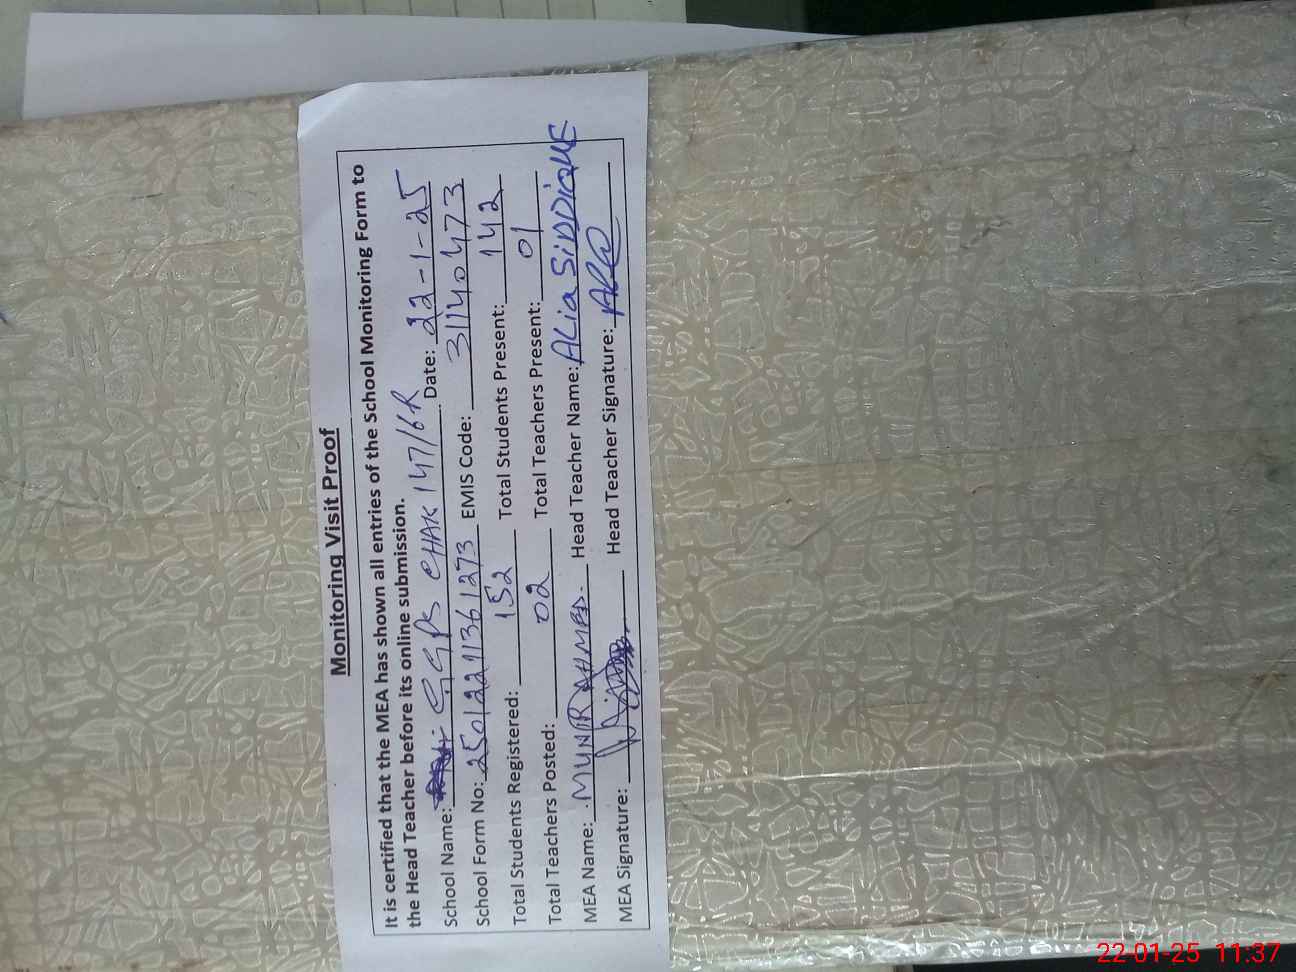 Monitoring Visit Proof
It is certified that the MEA has shown all entries of the School Monitoring Form to
the Head Teacher before its online submission.
School Name: GGPS CHAK 147/6R Date: 22-1-25
School Form No: 25012211361273 EMIS Code: 31140473
Total Students Registered: 152 Total Students Present: 142
Total Teachers Posted: 02 Total Teachers Present: 01
MEA Name: MUNIR AHMED. Head Teacher Name: ALia SiDDiQUE
MEA Signature: Head Teacher Signature:
22-01-25 11:37